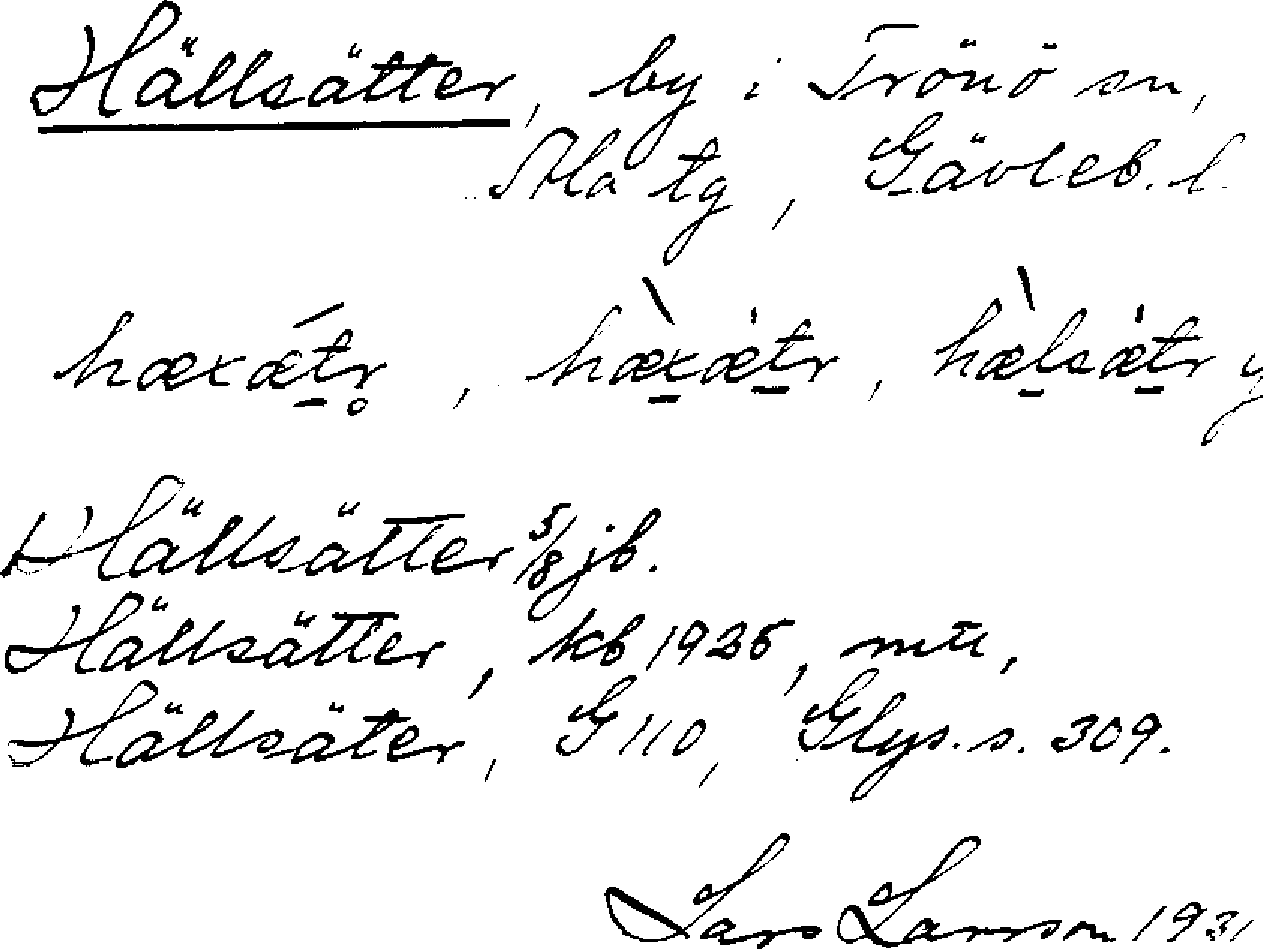 Hällsätter, by i Trönö sn,
Ala tg, Gävleb. l.
hæxǽt̠r̥, hæ̠̀xæ̍t̠r, hæ̀l̠sæ̍t̠r y
Hällsätter 5/8 jb.
Hällsätter, kb 1925, mtl,
Hällsäter, G 110, Glys. s. 309.
Lars Larsson 1931